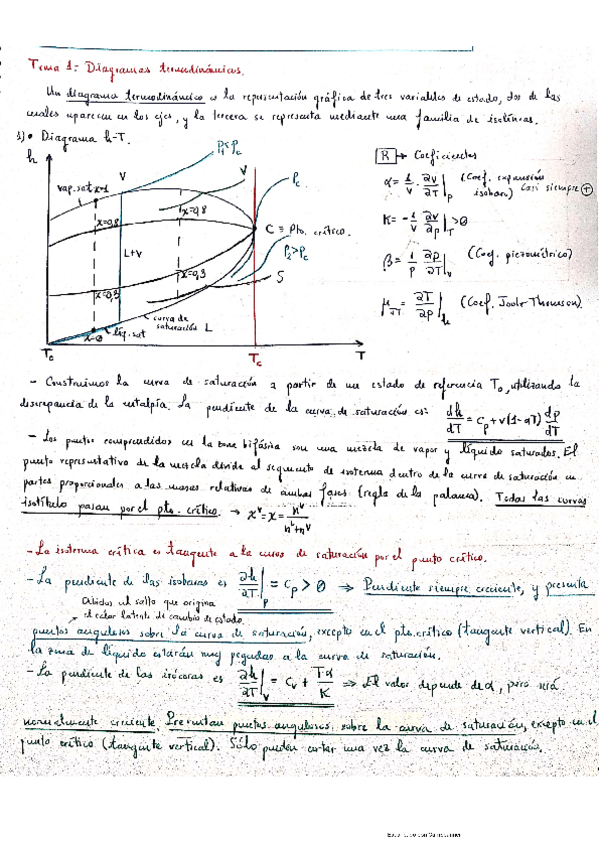 Tema 1: Diagramas termodinámicos.
Un diagrama termodinámico es la representación gráfica de tres variables de estado, dos de las
cuales aparecen en los ejes, y la tercera se representa mediante una familia de isolíneas.
1) • Diagrama h-T.
h
P₁<Pc
vap. sat x=1
V
V
x=0,8
x=0,8
Pc
C ≡ Pto. crítico.
L+V
P₂>Pc
x=0,3
x=0,3
S
x=0
líq. sat
curva de
saturación L
Tc
Tc
T
R → Coeficientes
α = 1/v · ∂v/∂T|p (Coef. expansión isobara) Casi siempre ⊕
K = -1/v ∂v/∂p|T >0
β = 1/p ∂p/∂T|v (Coef. piezométrico)
μJT = ∂T/∂p|h (Coef. Joule Thomson)
- Construimos la curva de saturación a partir de un estado de referencia T₀, utilizando la
discrepancia de la entalpía. La pendiente de la curva de saturación es: dh/dT = cp + v(1-αT) dp/dT
- Los puntos comprendidos en la zona bifásica son una mezcla de vapor y líquido saturados. El
punto representativo de la mezcla divide al segmento de isoterma dentro de la curva de saturación en
partes proporcionales a las masas relativas de ambas fases (regla de la palanca). Todas las curvas
isotítulo pasan por el pto. crítico. → xᵛ = x = nᵛ/(nᴸ+nᵛ)
- La isoterma crítica es tangente a la curva de saturación por el punto crítico.
- La pendiente de las isobaras es ∂h/∂T|p = cp > 0 ⇒ Pendiente siempre creciente, y presenta
Debidos al salto que origina
el calor latente de cambio de estado.
puntos angulosos sobre la curva de saturación, excepto en el pto. crítico (tangente vertical). En
la zona de líquido estarán muy pegadas a la curva de saturación.
- La pendiente de las isócoras es ∂h/∂T|v = cv + Tα/K ⇒ El valor depende de α, pero será
normalmente creciente. Presentan puntos angulosos sobre la curva de saturación, excepto en el
punto crítico (tangente vertical). Sólo pueden cortar una vez la curva de saturación.